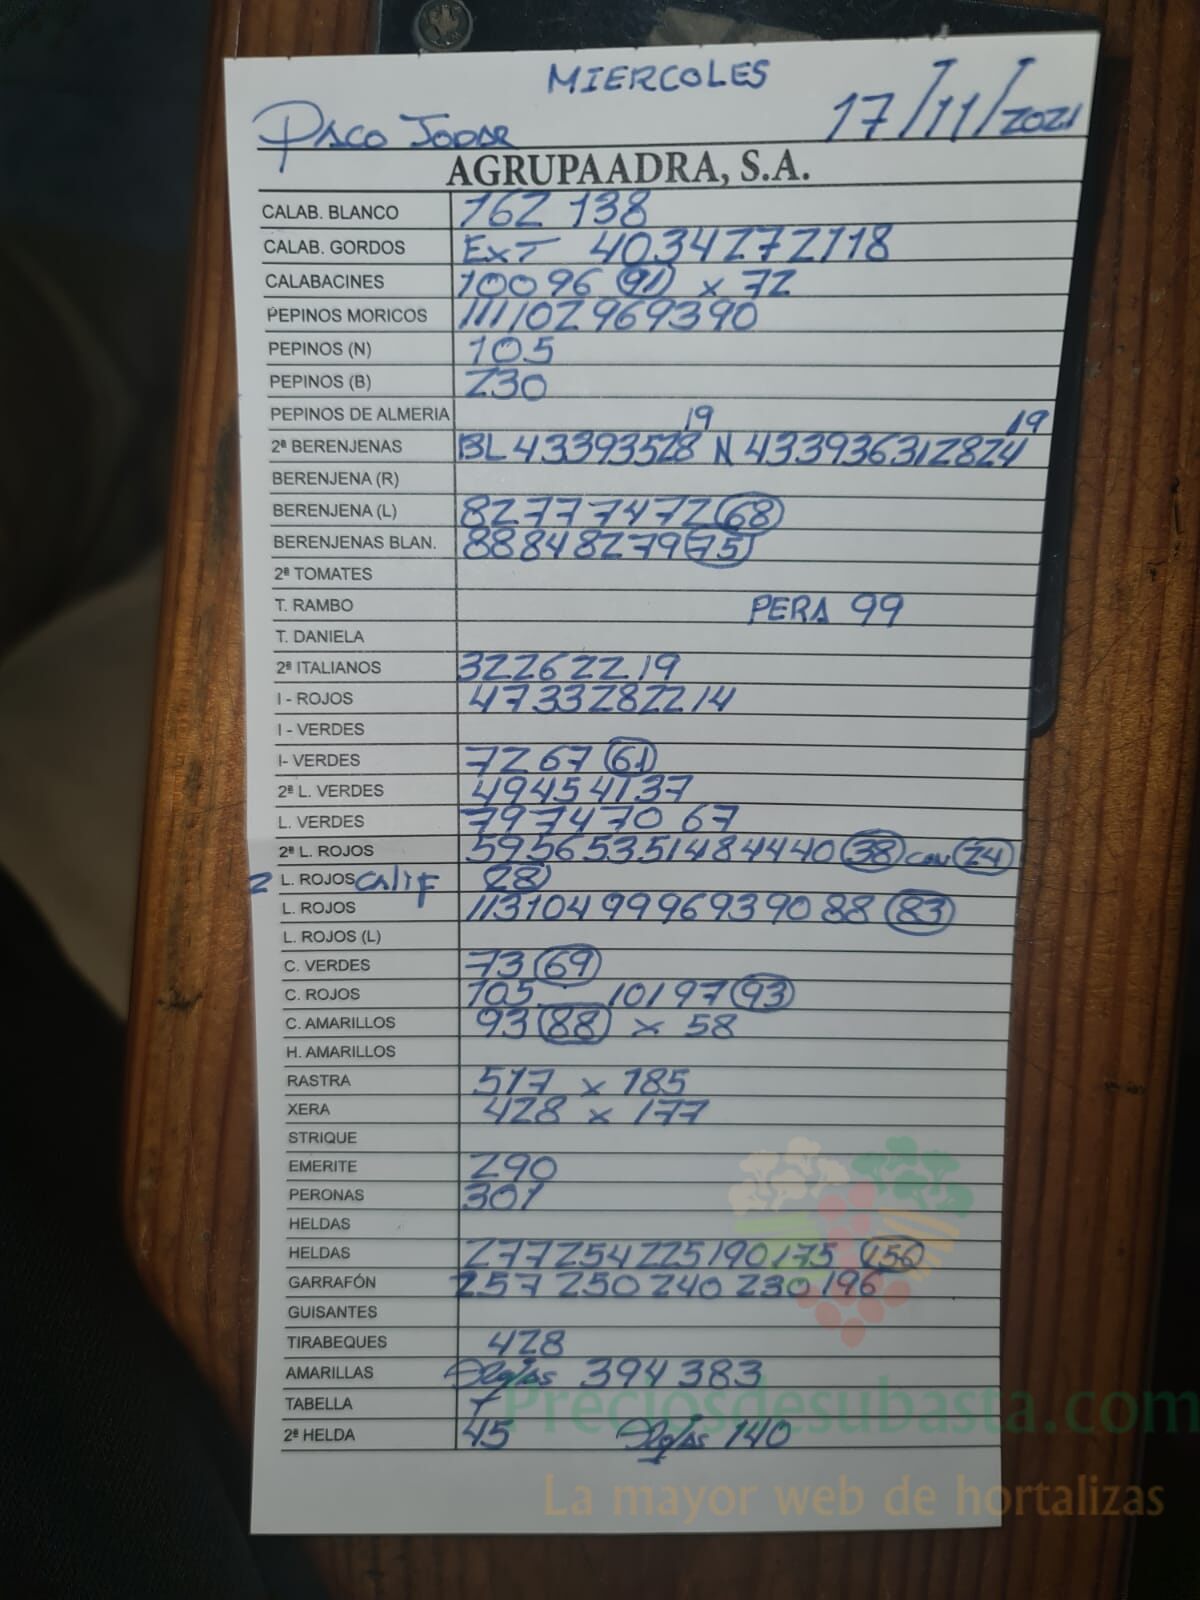 MIERCOLES
PACO JODAR 17/11/2021
AGRUPAADRA, S.A.
CALAB. BLANCO 162 138
CALAB. GORDOS EXT 4034272118
CALABACINES 10096 91 x 72
PEPINOS MORICOS 111102969390
PEPINOS (N) 105
PEPINOS (B) 230
PEPINOS DE ALMERIA
19 19
2ª BERENJENAS BL 43393528 N 433936312824
BERENJENA (R)
BERENJENA (L) 82777472 68
BERENJENAS BLAN. 88848279 75
2ª TOMATES
T. RAMBO PERA 99
T. DANIELA
2ª ITALIANOS 32262219
I - ROJOS 4733282214
I - VERDES
I- VERDES 7267 61
2ª L. VERDES 49454137
L. VERDES 797470 67
2ª L. ROJOS 595653514844440 38 con 24
2 L. ROJOS CALIF 28
L. ROJOS 113104999693908 8 83
L. ROJOS (L)
C. VERDES 73 69
C. ROJOS 105 10197 93
C. AMARILLOS 93 88 x 58
H. AMARILLOS
RASTRA 517 x 185
XERA 428 x 177
STRIQUE
EMERITE 290
PERONAS 301
HELDAS
HELDAS 277254225190175 156
GARRAFÓN 257 250 240 230 196
GUISANTES
TIRABEQUES 428
AMARILLAS 394 383
TABELLA
2ª HELDA 45 140
Preciosdesubasta.com
La mayor web de hortalizas